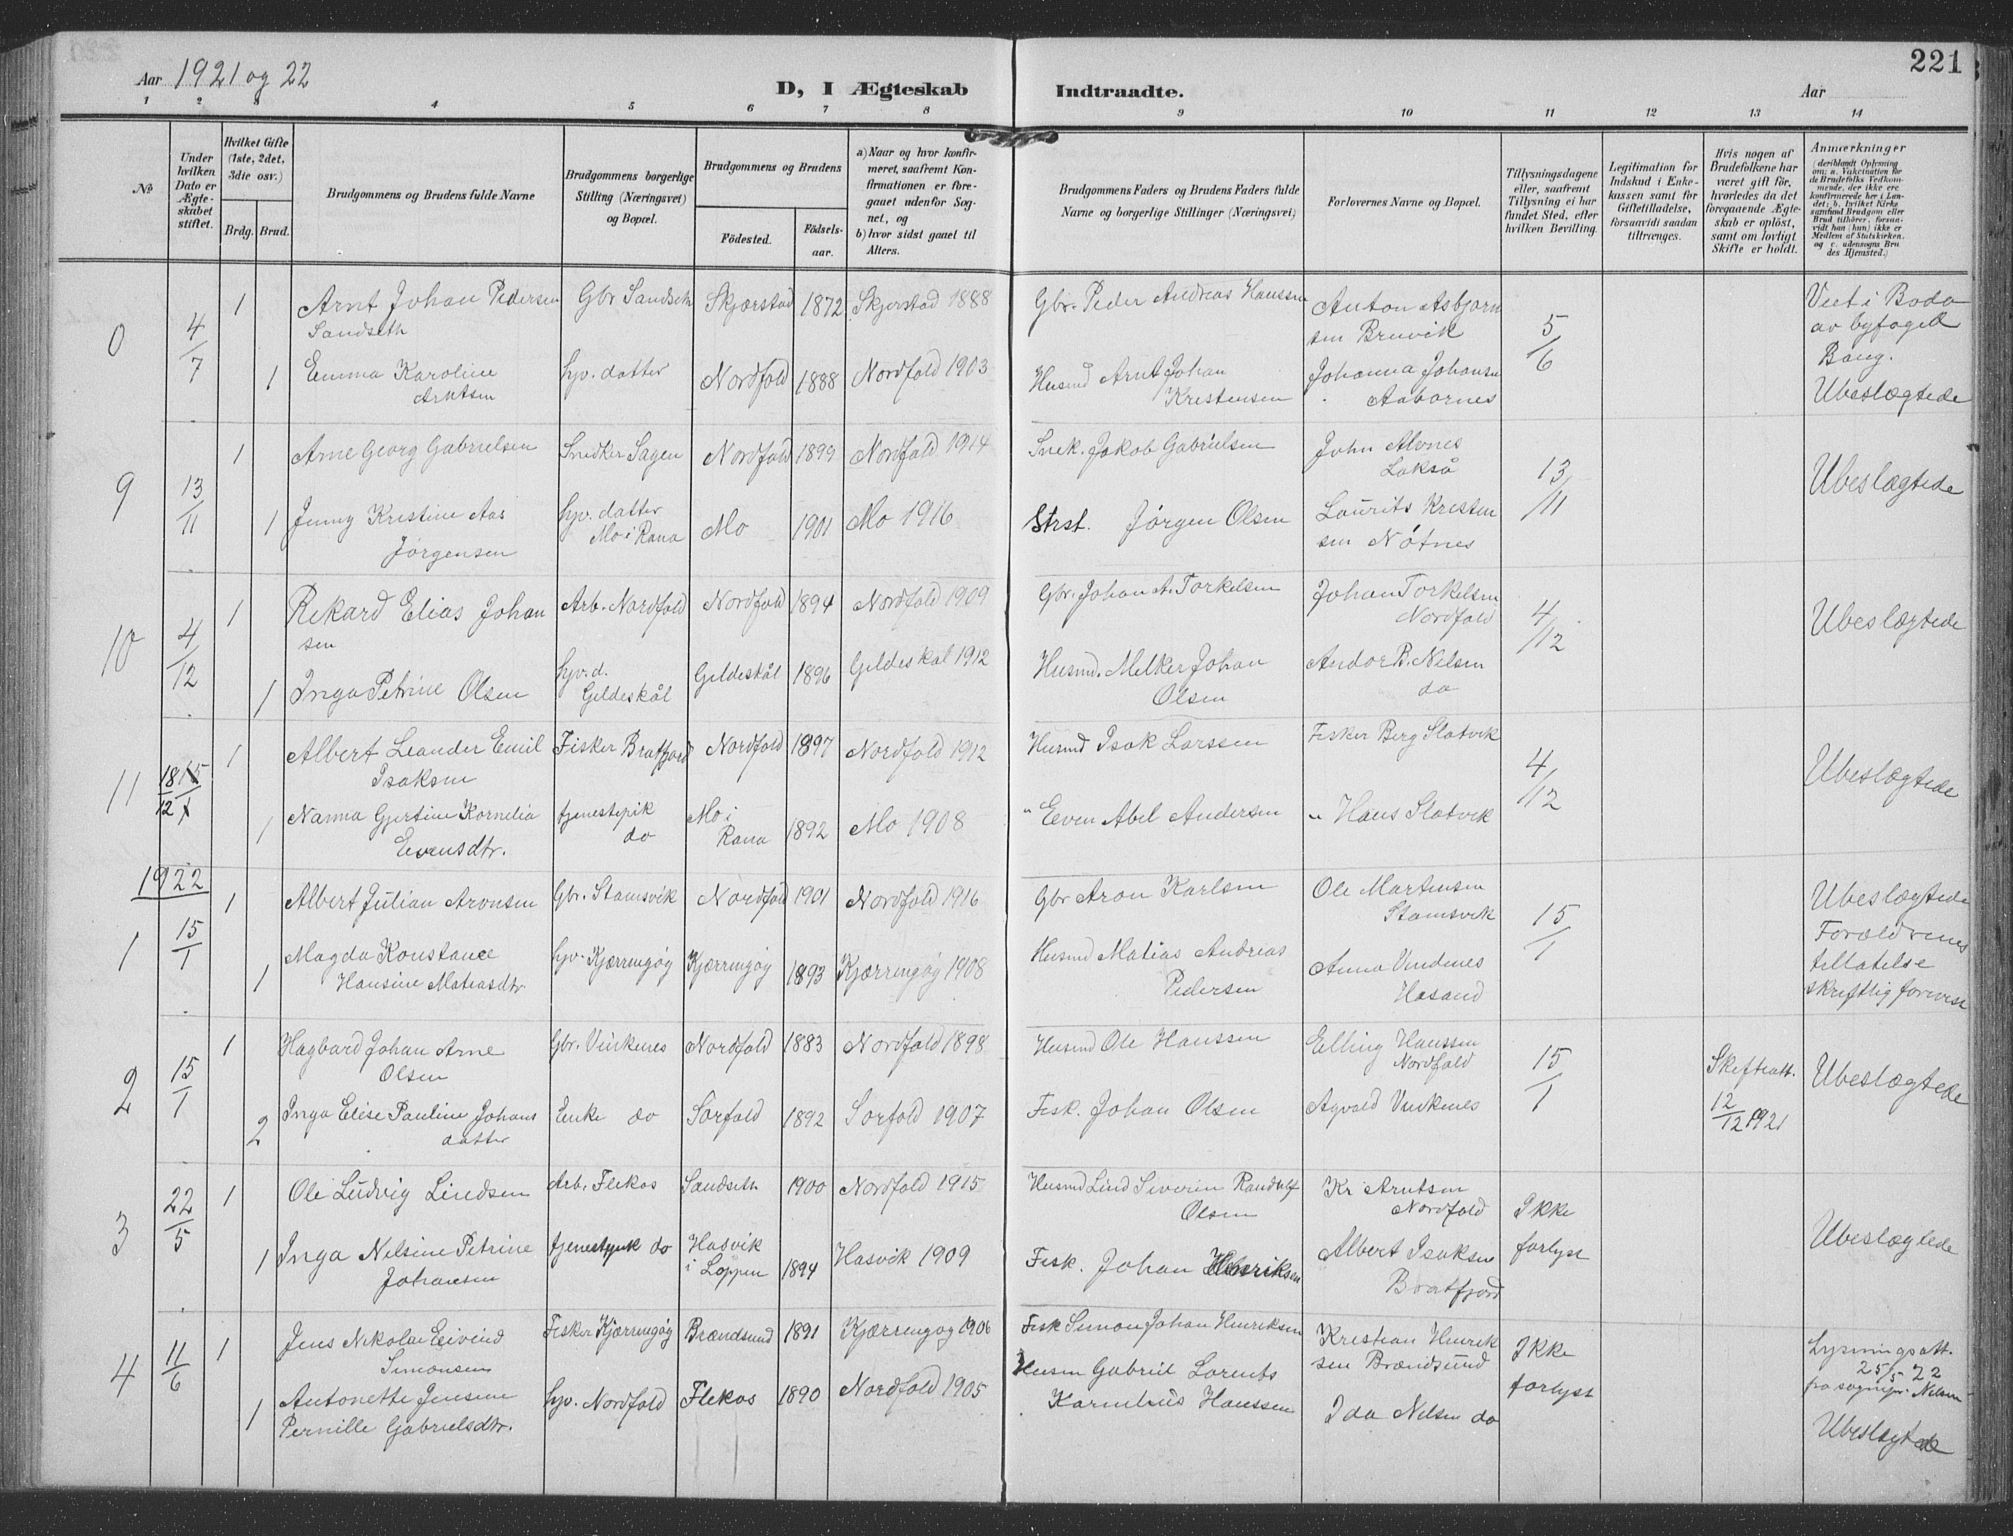 221
Aar 1921 og 22
D, I Ægteskab Indtraadte.
Aar
1 2 3 4 5 6 7 8 9 10 11 12 13 14
No
Under hvilken Dato er Ægteskabet stiftet.
Hvilket Gifte (1ste, 2det, 3die osv.)
Brdg. Brud.
Brudgommens og Brudens fulde Navne
Brudgommens borgerlige Stilling (Næringsvei) og Bopæl.
Brudgommens og Brudens
Födested.
Födselsaar.
a) Naar og hvor konfirmeret, saafremt Konfirmationen er foregaaet udenfor Sognet, og
b) hvor sidst gaaet til Alters.
Brudgommens Faders og Brudens Faders fulde Navne og borgerlige Stillinger (Næringsvei)
Forlovernes Navne og Bopæl.
Tillysningsdagene eller, saafremt Tillysning ei har fundet Sted, efter hvilken Bevilling.
Legitimation for Indskud i Enkekassen samt for Giftetilladelse, forsaavidt saadan tiltrænges.
Hvis nogen af Brudefolkene har været gift för, hvorledes da det foregaaende Ægteskab er oplöst, samt om lovligt Skifte er holdt.
Anmærkninger
(deriblandt Oplysning om: a. Vaccination for de Brudefolks Vedkommende, der ikke ere konfirmerede her i Landet; b. hvilket Kirkesamfund Brudgom eller Brud tilhörer, forsaavidt han (hun) ikke er Medlem af Statskirken, og c. udensogns Brudes Hjemsted.)
4/7 1 Arnt Johan Pedersen Gbr Sandseth Skjærstad 1872 Skjerstad 1888 Gbr. Peder Andreas Hanssen Anton Asbjörn 5/6 Viet i Bodø
Sandseth sen Bruvik av byfoged
1 Emma Karoline hv. datter Nordfold 1888 Nordfold 1903 Husmd Arnt Johan Johanna Johansen Bang.
Arntsen Kristensen Ubeslægtede
9 13/11 1 Arne Georg Gabrielsen Snedker Sagen Nordfold 1899 Nordfold 1914 Snek. Jakob Gabrielsen John Alvnes 13/11 Ubeslægtede
Lakså
1 Jenny Kristine Aas hv. datter Mo 1901 Mo 1916 Strst. Jørgen Olsen Laurits Kristen
Jørgensen Mo i Rana sen Nötnes
10 4/12 1 Rikard Elias Johan Arb. Nordfold Nordfold 1894 Nordfold 1909 Gbr. Johan A. Torkelsen Johan Torkelsen 4/12 Ubeslægtede
sen Nordfold
1 Inga Petrine Olsen hv. d. Gildeskål 1896 Gildeskål 1912 Husmd. Melker Johan Andor B. Nilsen
Gildeskål Olsen do
11 18/12 1 Albert Leander Emil Fisker Bratfjord Nordfold 1897 Nordfold 1912 Husmd Isak Larssen Fisker Berg Slatvik 4/12 Ubeslægtede
Isaksen
1 Nanna Gjertine Kornelia tjenestepik Mo i 1892 Mo 1908 " Even Abel Andersen " Hans Slatvik
Evensdtr. do Rana
1922
1 15/1 1 Albert Julian Aronsen Gbr. Stamsvik Nordfold 1901 Nordfold 1916 Gbr Aron Karlsen Ole Martensen 15/1 Ubeslægtede
Stamsvik Forældrenes
1 Magda Konstance hv. Kjærringøy Kjærringøy 1893 Kjærringøy 1908 Husmd Matias Andreas Anna tillatelse
Hansine Matiasdtr. Pedersen skriftlig forevist
2 15/1 1 Hagbard Johan Arne Gbr. Vinkenes Nordfold 1883 Nordfold 1898 Husmd Ole Hanssen Elling Hanssen 15/1 Skifteatt. Ubeslægtede
Olsen Nordfold
2 Inga Elise Pauline Johans Enke do Sørfold 1892 Sørfold 1907 Fisk. Johan Olsen Agvald Vinkenes 12/12 1921
datter
3 22/5 1 Ole Ludvig Lindsen Arb. Flekos Sandseth 1900 Nordfold 1915 Husmd Lind Severin Randulf Kr Arntsen Ikke Ubeslægtede
Olsen Nordfold forlyst
1 Inga Nelsine Petrine tjenestpik do Hasvik 1894 Hasvik 1909 Fisk. Johan Henriksen Albert Isaksen
Johansen i Loppen Bratfjord
4 11/6 1 Jens Nikolai Eivind Fisker Kjærringøy Brændsund 1891 Kjærringøy 1906 Fisk Simon Johan Hinriksen Kristian Hinrik Ikke Lysningsatt.
Simonsen sen Brændsund forlyst 25/5 22
1 Antonette Jensine hv. Nordfold Flekos 1890 Nordfold 1905 Husm Gabriel Lorents Ida Nilsen do fra sognepr. Nilsen
Pernille Gabrielsdtr. Kornelius Hanssen Ubeslægtede